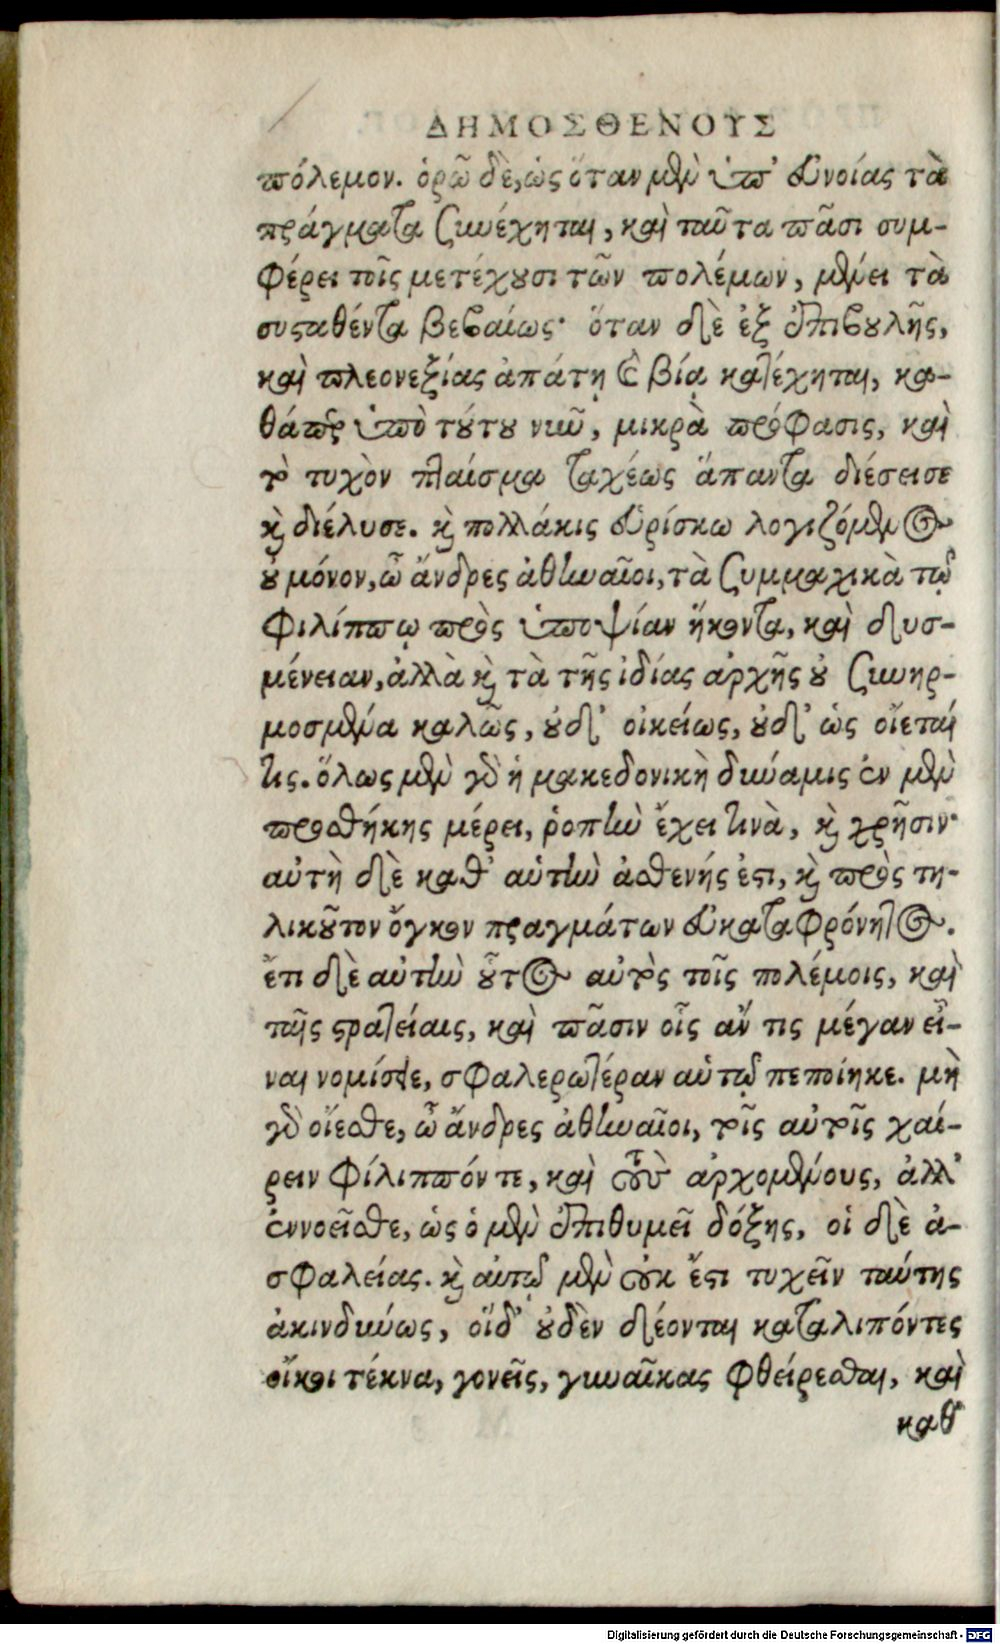 ΔΗΜΟΣΘΕΝΟΥΣ
πόλεμον. ὁρῶ δὲ, ὡς ὅταν μὲν ὑπ' εὐνοίας τὰ
πράγματα συνέχηται, καὶ ταῦτα πᾶσι συμ-
φέρει τοῖς μετέχουσι τῶν πολέμων, μένει τὰ
συσταθέντα βεβαίως· ὅταν δὲ ἐξ ἐπιβουλῆς,
καὶ πλεονεξίας ἀπάτῃ καὶ βίᾳ κατέχηται, κα-
θάπερ ὑπὸ τούτου νῦν, μικρὰ πρόφασις, καὶ
τὸ τυχὸν πταίσμα ταχέως ἅπαντα διέσεισε
καὶ διέλυσε. καὶ πολλάκις εὑρίσκω λογιζόμενος
οὐ μόνον, ὦ ἄνδρες ἀθηναῖοι, τὰ συμμαχικὰ τῷ
φιλίππῳ πρὸς ὑποψίαν ἥκοντα, καὶ δυσ-
μένειαν, ἀλλὰ καὶ τὰ τῆς ἰδίας ἀρχῆς οὐ συνηρ-
μοσμένα καλῶς, οὐδ' οἰκείως, οὐδ' ὡς οἴεταί
τις. ὅλως μὲν γὰρ ἡ μακεδονικὴ δύναμις ἐν μὲν
προσθήκης μέρει, ῥοπὴν ἔχει τινὰ, καὶ χρῆσιν·
αὐτὴ δὲ καθ' αὑτὴν ἀσθενής ἐστι, καὶ πρὸς τη-
λικοῦτον ὄγκον πραγμάτων εὐκαταφρόνητος.
ἔτι δὲ αὐτὴν οὗτος αὐτὸς τοῖς πολέμοις, καὶ
ταῖς στρατείαις, καὶ πᾶσιν οἷς ἄν τις μέγαν εἶ-
ναι νομίσειε, σφαλερωτέραν αὑτῷ πεποίηκε. μὴ
γὰρ οἴεσθε, ὦ ἄνδρες ἀθηναῖοι, τοῖς αὐτοῖς χαί-
ρειν φίλιππόν τε, καὶ τοὺς ἀρχομένους, ἀλλ'
ἐννοεῖσθε, ὡς ὁ μὲν ἐπιθυμεῖ δόξης, οἱ δὲ ἀ-
σφαλείας. καὶ αὐτῷ μὲν οὐκ ἔστι τυχεῖν ταύτης
ἀκινδύνως, οἵδ' οὐδὲν δέονται καταλιπόντες
οἴκοι τέκνα, γονεῖς, γυναῖκας φθείρεσθαι, καὶ
καθ'
Digitalisierung gefördert durch die Deutsche Forschungsgemeinschaft - DFG